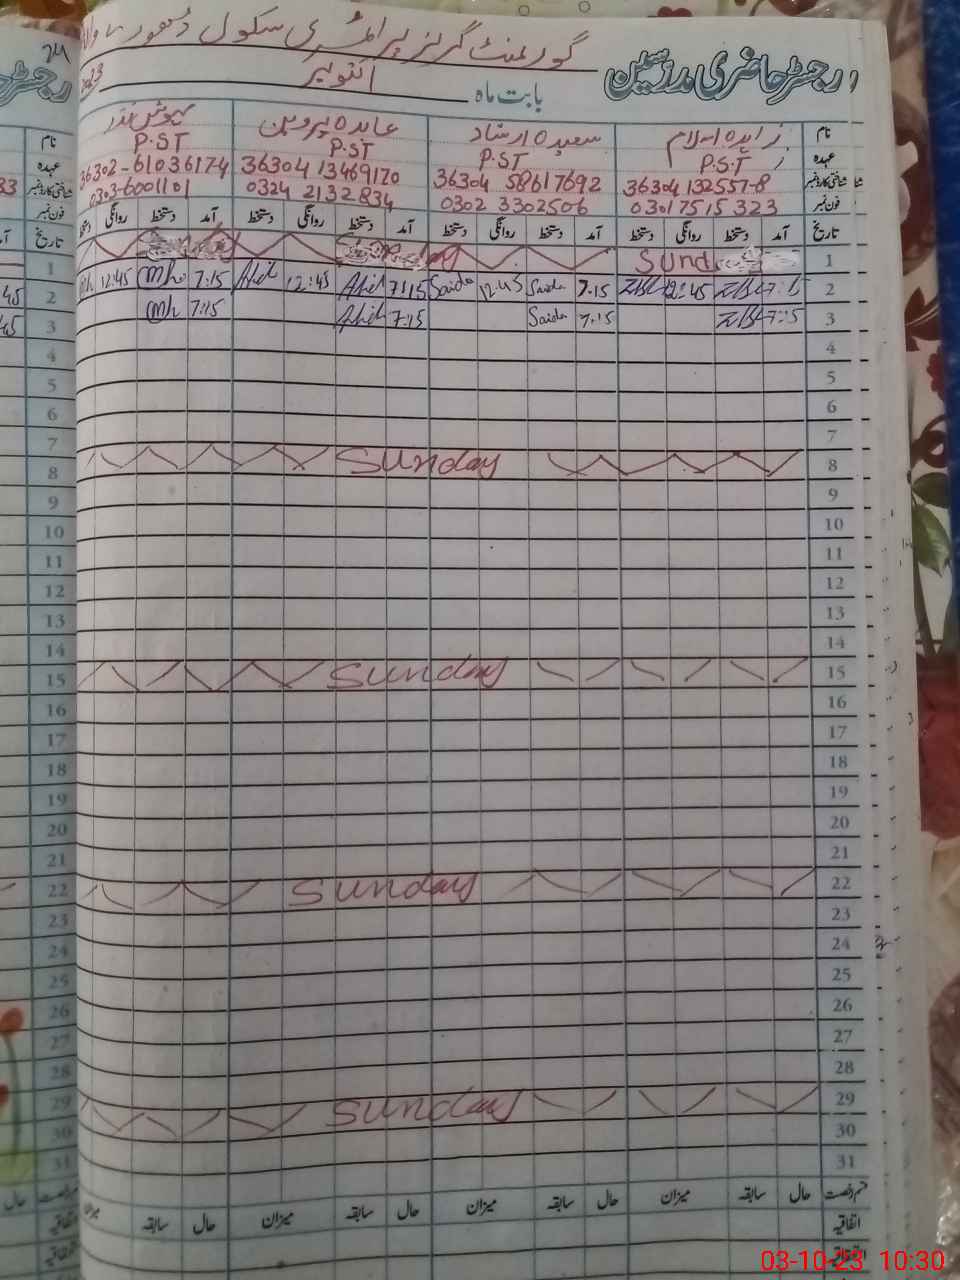 رجسٹر حاضری مدرسین گورنمنٹ گرلز پرائمری سکول
بابت ماہ اکتوبر 2023
نام زاہدہ اسلام سعیدہ ارشاد عابدہ پروین
عہدہ P.S.T P.S.T P.S.T P.S.T
شناختی کارڈ نمبر 36304 1325578 36304 58617692 36304 13469170 36302-61036174
فون نمبر 0301 7515 323 0302 3302506 0324 2132834 0303-6001101
تاریخ آمد دستخط روانگی دستخط آمد دستخط روانگی دستخط آمد دستخط روانگی دستخط آمد دستخط روانگی دستخط
1 Sund
2 7:15 12:45 7.15 Saida 12.45 Saida 7:15 Abid 12:45 Abid 7:15 12:45
3 7:15 7.15 Saida 7:15 Abid 7:15
4
5
6
7
8 Sunday
9
10
11
12
13
14
15 Sunday
16
17
18
19
20
21
22 Sunday
23
24
25
26
27
28
29 Sunday
30
31
قسم رخصت حال سابقہ میزان حال سابقہ میزان حال سابقہ میزان حال سابقہ میزان
اتفاقیہ
03-10-23 10:30